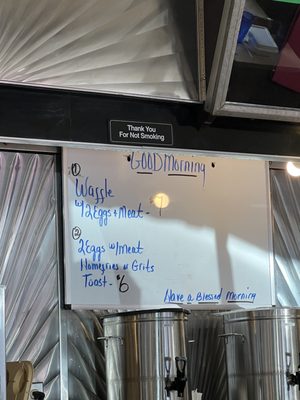 Thank You
For Not Smoking
GOOD MORNING
①
Waffle
w/2Eggs + Meat - 
②
2Eggs w/Meat
Homefries or Grits
Toast - $6
Have a Blessed Morning